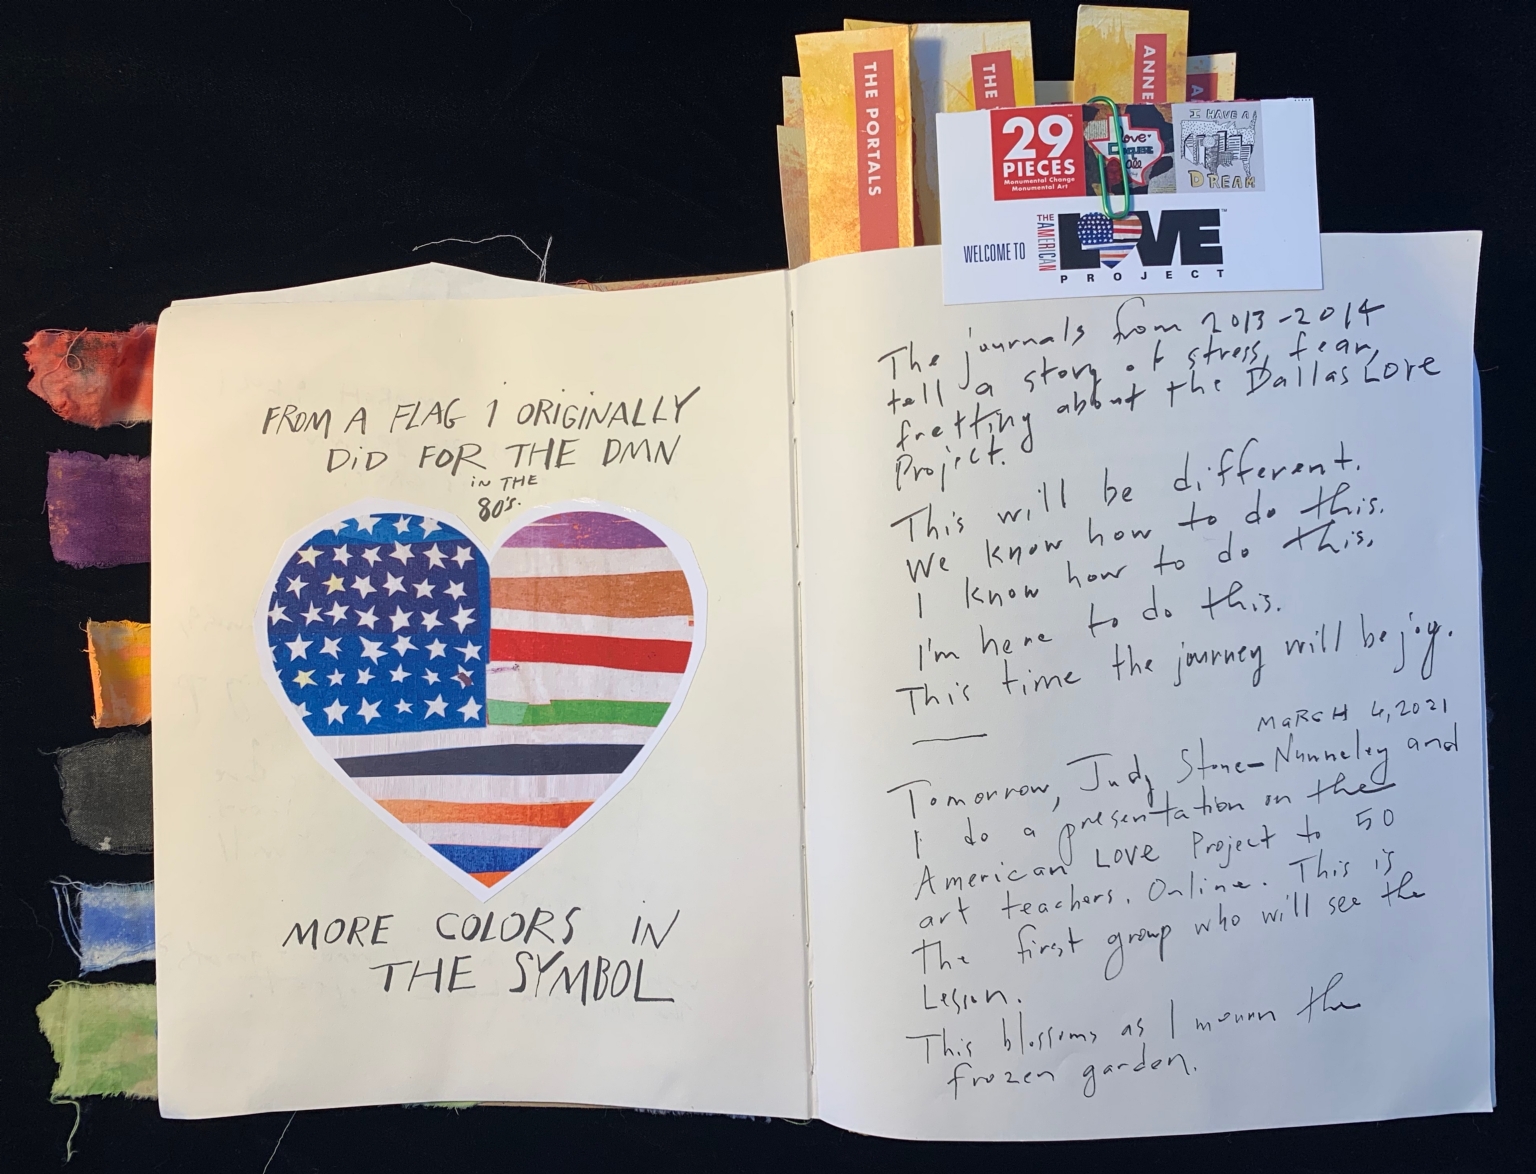 THE PORTALS
THE
ANNE
A
29
PIECES
Monumental Change
Monumental Art
Love
I HAVE A
DREAM
WELCOME TO
THE AMERICAN
LOVE
PROJECT
FROM A FLAG I ORIGINALLY
DiD FOR THE DMN
iN THE
80's.
MORE COLORS IN
THE SYMBOL
The journals from 2013-2014
tell a story of stress, fear,
fretting about the Dallas Love
Project.
This will be different.
We know how to do this.
I know how to do this.
I'm here to do this.
This time the journey will be joy.
MARCH 4, 2021
Tomorrow, Judy Stone-Nunneley and
I do a presentation on the
American LOVE Project to 50
art teachers. Online. This is
the first group who will see the
Lesson.
This blossoms as I mourn the
frozen garden.